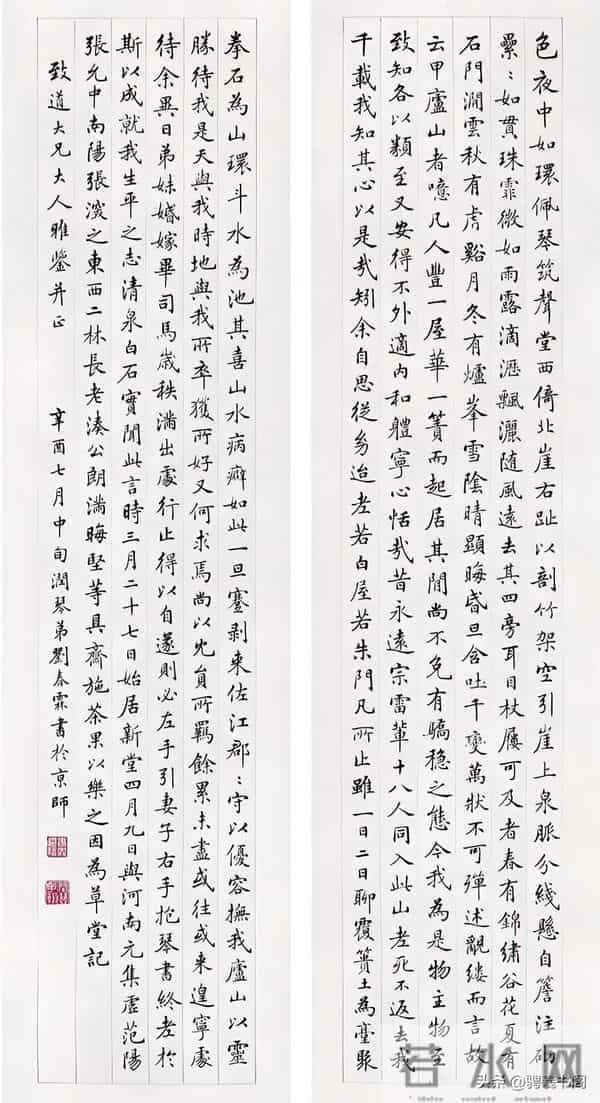 色夜中如環佩琴筑聲堂西倚北崖右趾以剖竹架空引崖上泉脈分綫懸自簷注砌
纍〻如貫珠霏微如雨露滴瀝飄灑隨風遠去其四旁耳目杖屨可及者春有錦繡谷花夏有
石門澗雲秋有虎谿月冬有爐峯雪陰晴顯晦昏旦含吐千變萬狀不可殫述覼縷而言故
云甲廬山者噫凡人豐一屋華一簀而起居其閒尚不免有驕穩之態今我為是物主物至
致知各以類至又安得不外適內和體寧心恬哉昔永遠宗雷輩十八人同入此山老死不返去我
千載我知其心以是哉矧余自思從幼迨老若白屋若朱門凡所止雖一日二日聊覆簣土為臺聚
拳石為山環斗水為池其喜山水病癖如此一旦蹇剥來佐江郡〻守以優容撫我廬山以靈
勝待我是天與我時地與我所卒獲所好又何求焉尚以冗員所羈餘累未盡或往或來遑寧處
待余異日弟妹婚嫁畢司馬歲秩滿出處行止得以自遂則必左手引妻子右手抱琴書終老於
斯以成就我生平之志清泉白石實聞此言時三月二十七日始居新堂四月九日與河南元集虛范陽
張允中南陽張深之東西二林長老湊公朗滿晦堅等具齋施茶果以樂之因為草堂記
致道大兄大人雅鑒并正
辛酉七月中旬潤琴弟劉春霖書於京師
若水网